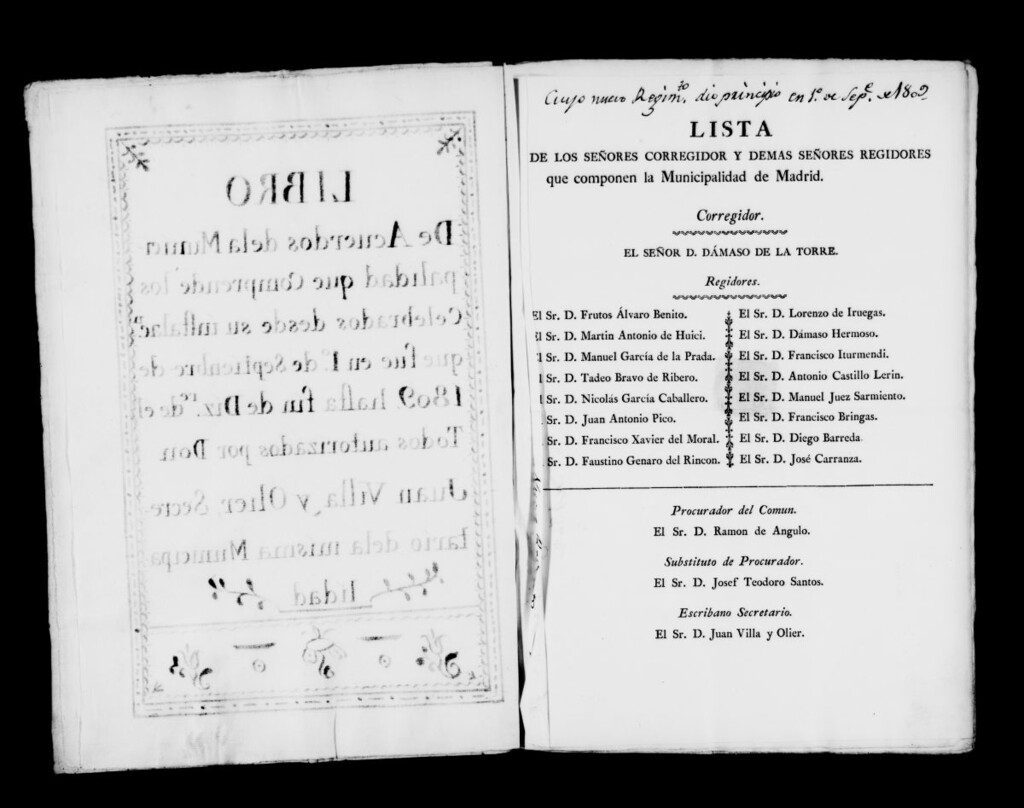 LIBRO
De Acuerdos dela Munici
palidad que Comprende los
Celebrados desde su instalac.ⁿ
que fue en 1.º de Septiembre de
1809 hasta fin de Diz.ʳᵉ de el
Todos autorizados por Don
Juan Villa y Olier Secre-
tario dela misma Municipa
lidad
Cuyo nuevo Regim.ᵗᵒ dio principio en 1.º de Sep.ᵉ de 1809
LISTA
DE LOS SEÑORES CORREGIDOR Y DEMAS SEÑORES REGIDORES
que componen la Municipalidad de Madrid.
Corregidor.
EL SEÑOR D. DÁMASO DE LA TORRE.
Regidores.
El Sr. D. Frutos Álvaro Benito.
El Sr. D. Martin Antonio de Huici.
l Sr. D. Manuel García de la Prada.
l Sr. D. Tadeo Bravo de Ribero.
l Sr. D. Nicolás García Caballero.
Sr. D. Juan Antonio Pico.
Sr. D. Francisco Xavier del Moral.
Sr. D. Faustino Genaro del Rincon.
El Sr. D. Lorenzo de Iruegas.
El Sr. D. Dámaso Hermoso.
El Sr. D. Francisco Iturmendi.
El Sr. D. Antonio Castillo Lerin.
El Sr. D. Manuel Juez Sarmiento.
El Sr. D. Francisco Bringas.
El Sr. D. Diego Barreda
El Sr. D. José Carranza.
Procurador del Comun.
El Sr. D. Ramon de Angulo.
Substituto de Procurador.
El Sr. D. Josef Teodoro Santos.
Escribano Secretario.
El Sr. D. Juan Villa y Olier.